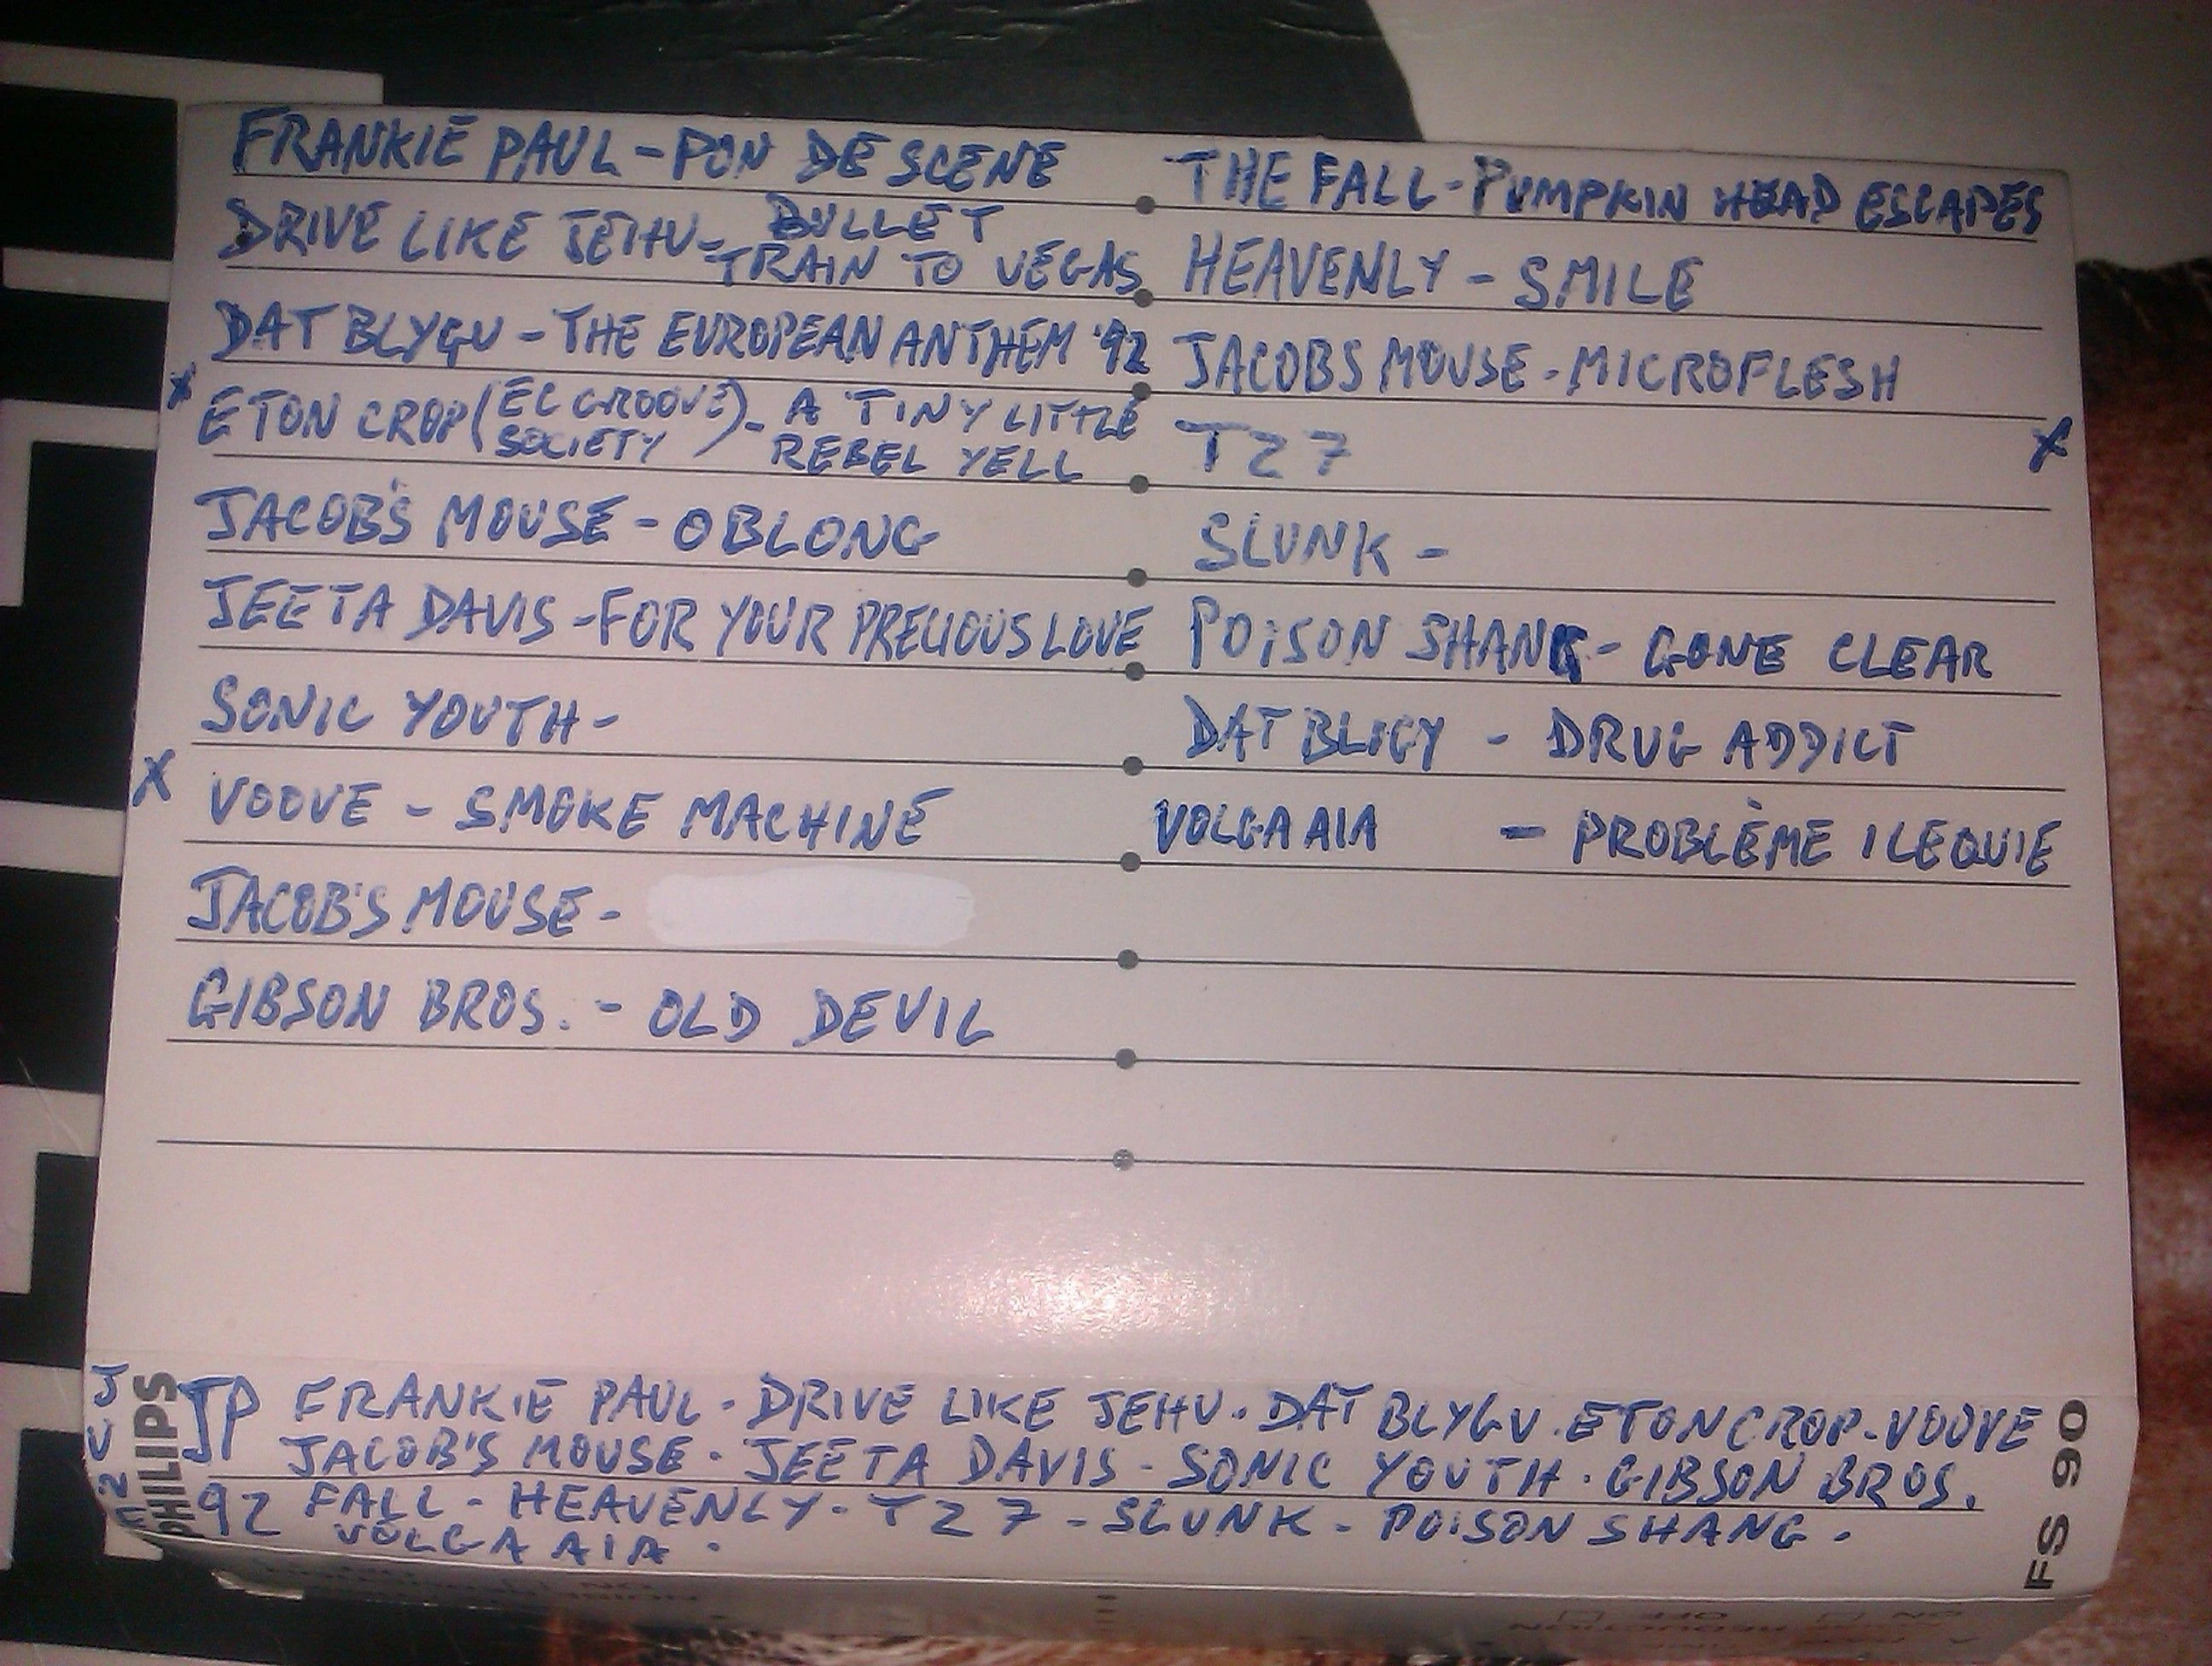 FRANKIE PAUL - PON DE SCENE
DRIVE LIKE JEHU - BULLET
TRAIN TO VEGAS
DAT BLYGU - THE EUROPEAN ANTHEM '92
X ETON CROP (EC GROOVE SOCIETY) - A TINY LITTLE
REBEL YELL
JACOB'S MOUSE - OBLONG
JEETA DAVIS - FOR YOUR PRECIOUS LOVE
SONIC YOUTH -
X VOOVE - SMOKE MACHINE
JACOB'S MOUSE -
GIBSON BROS. - OLD DEVIL
THE FALL - PUMPKIN HEAD ESCAPES
HEAVENLY - SMILE
JACOBS MOUSE - MICROFLESH
TZ 7 X
SLUNK -
POISON SHANG - GONE CLEAR
DAT BLIGY - DRUG ADDICT
VOLGA AIA - PROBLÈME ILEQUIE
PHILIPS
JP FRANKIE PAUL - DRIVE LIKE JEHU. DAT BLYGU. ETON CROP - VOOVE
JACOB'S MOUSE - JEETA DAVIS - SONIC YOUTH. GIBSON BROS.
92 FALL - HEAVENLY - TZ 7 - SLUNK - POISON SHANG -
VOLGA AIA.
FS 90